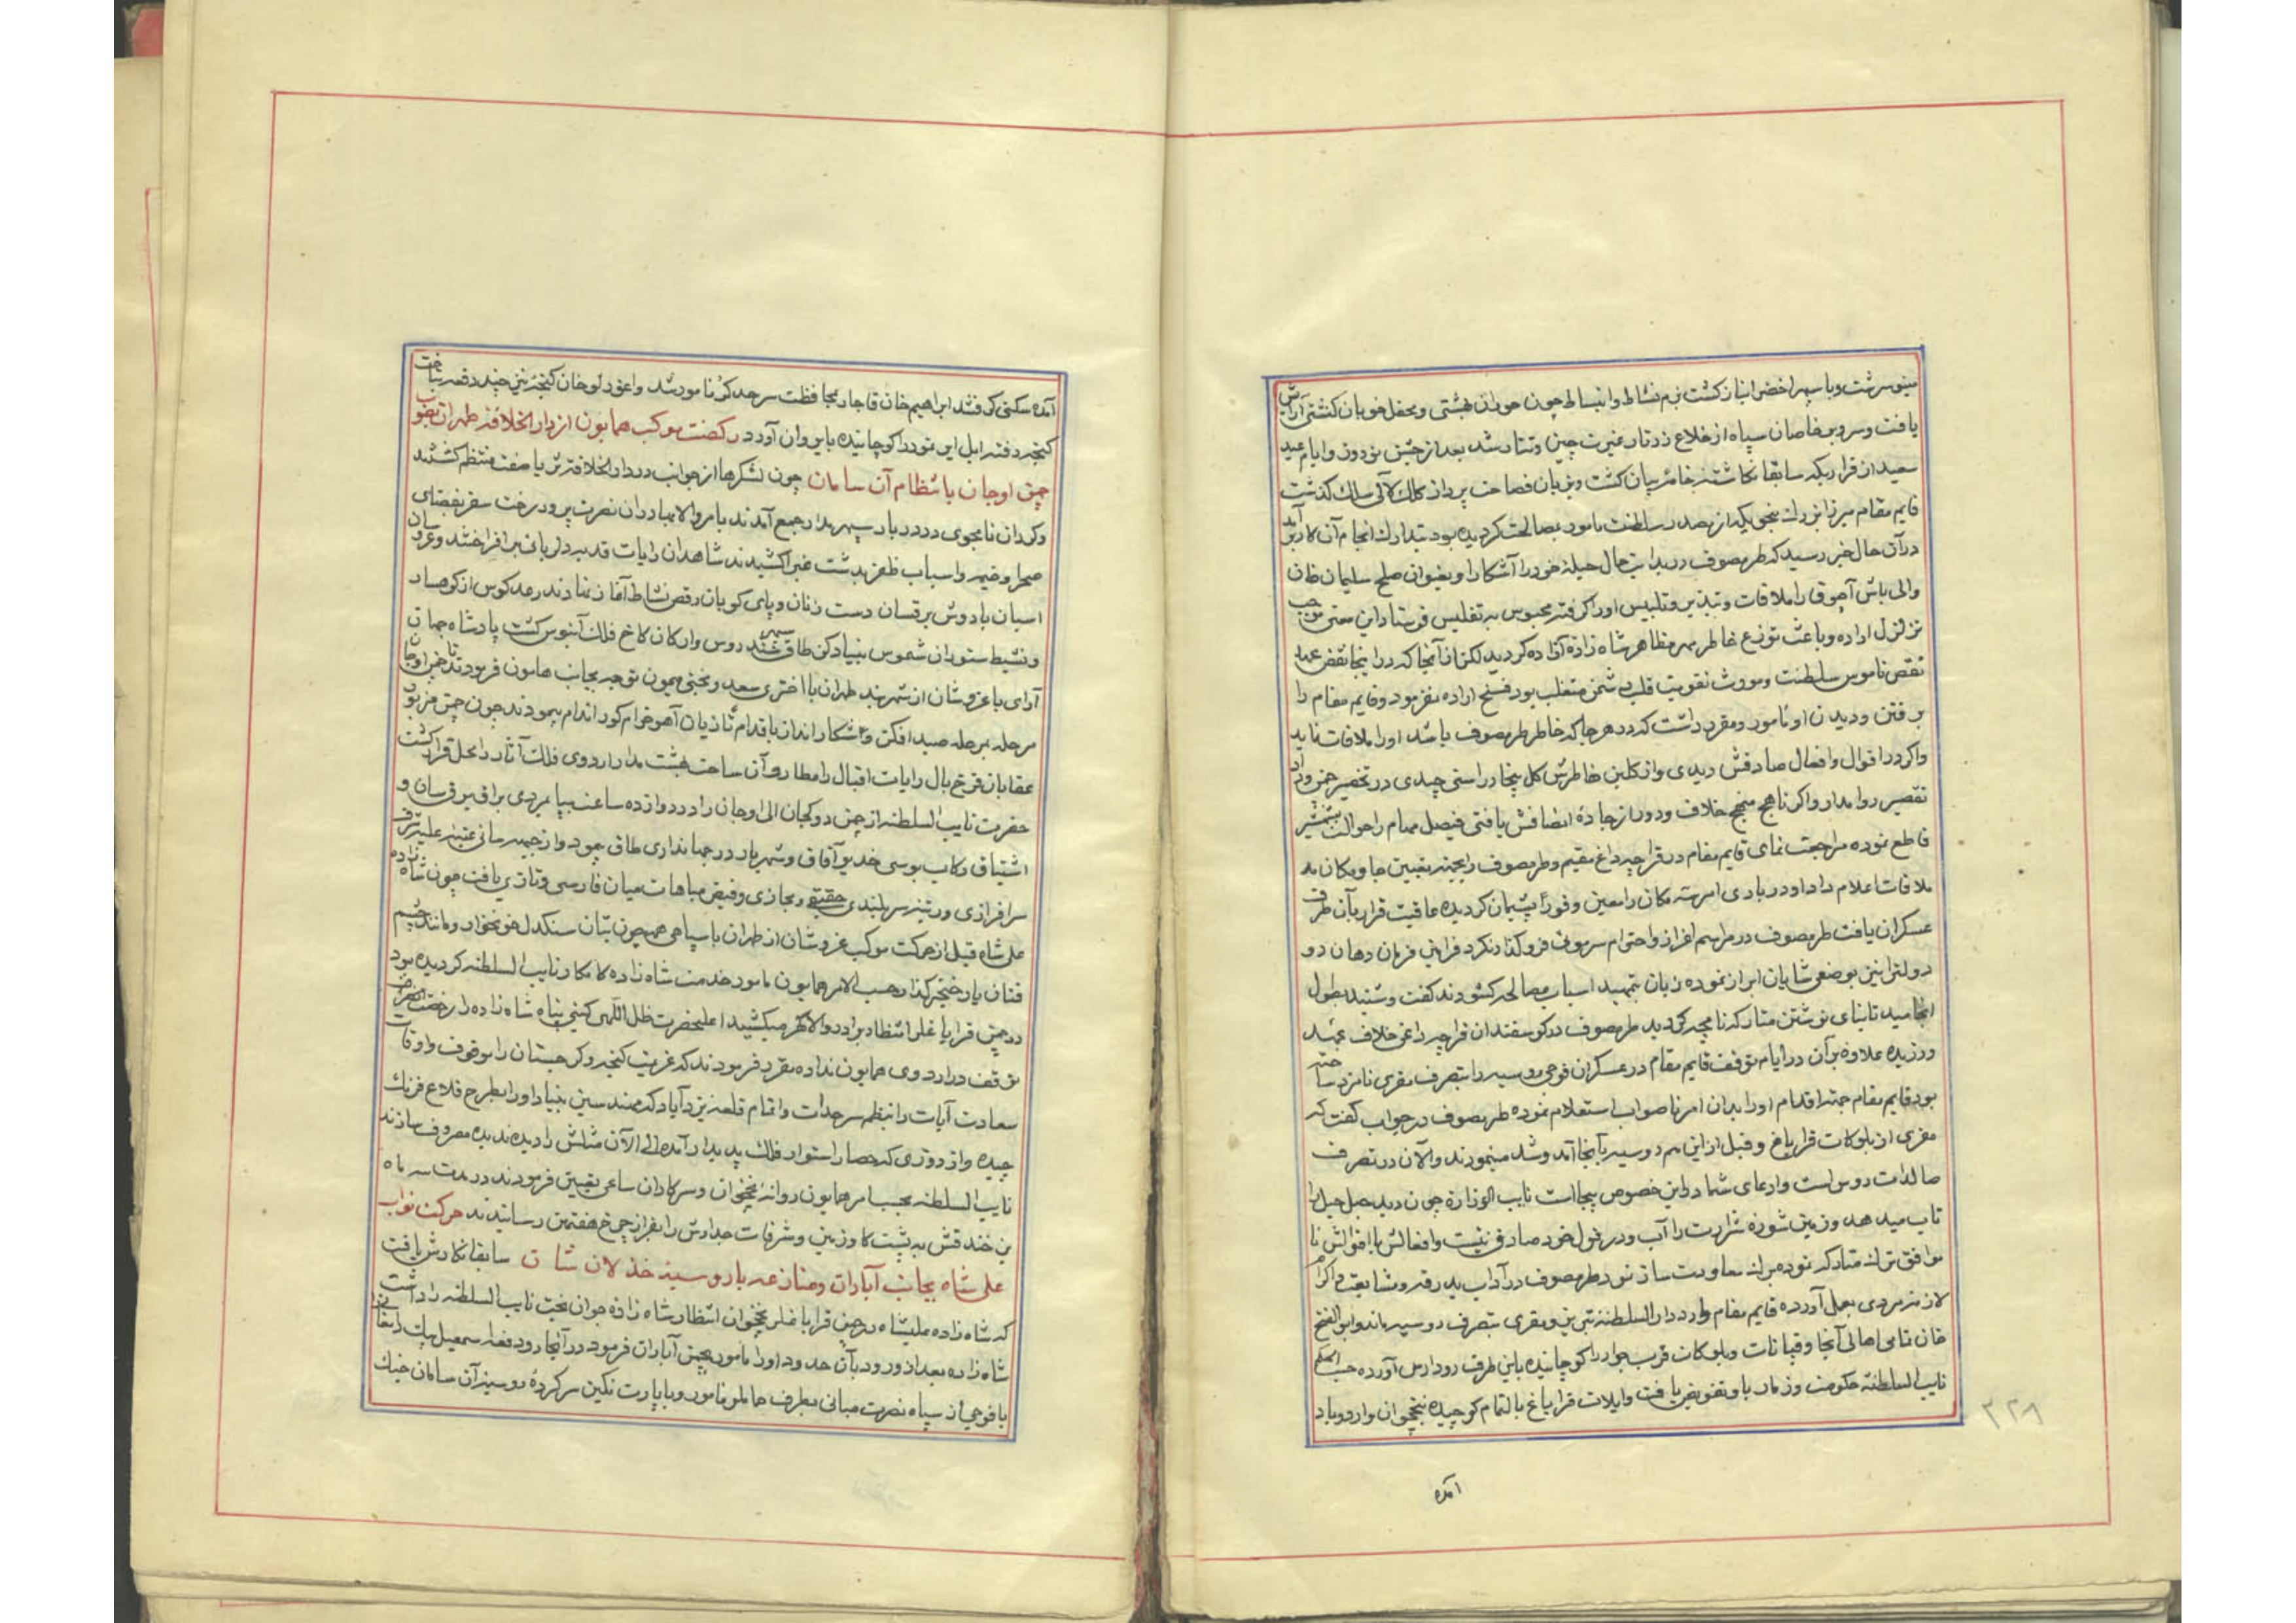 مینو سرشت و با سپهر اخضر انباز گشت بزم نشاط و انبساط چون حوران بهشتی و محفل خوبان کشتی آرایش
یافت و سر و بر خاصان سپاه از خلاع زرتار غیرت چین و تتار شد بعد از جشن نوروز و ایام عید
سعید از قراریکه سابقا نگاشته خامه بیان گشت و بزبان فصاحت پرداز کلک لآلی سلک گذشت
قایم مقام میرزا بزرك بنحویکه از مصدر سلطنت مامور بمصالحت گردیده بود بتدارك انجام آن کار برآمد
در آن حال خبر رسید که طرمصوف در بدایت حال حیله خود را آشکارا و بعنوان صلح سلیمان خان
والی باش آچوق را ملاقات و بتذویر و تلبیس او را گرفته محبوس به تفلیس فرستاد این معنی موجب
تزلزل اراده و باعث توزع خاطر مهر مظاهر شاه زاده آزاده گردید لکن از آنجا که در اینجا نقض عهد
نقص ناموس سلطنت و مورث تقویت قلب دشمن متغلب بود فسخ اراده نفرمود و قایم مقام را
برفتن و دیدن او مامور و مقرر داشت که در هر جا که خاطر طرمصوف باشد او را ملاقات نماید
و اگر در اقوال و افعال صادقش دیدی و از گلبن خاطرش گل بیخار راستی چیدی در تخمیر خمیر وداد
تقصیر روا مدار و اگر ناهج منهج خلاف و دور از جاده انصافش یافتی فیصل مهام را حوالت بشمشیر
قاطع نموده مراجعت نمای قایم مقام در قراجه داغ مقیم و طرمصوف را بجهته تعیین جا و مکان
ملاقات اعلام داد او در بادی امر سه مکان را معین و فورا پشیمان گردیده عاقبت قرار بآن طرف
عسکران یافت طرمصوف در مراسم اعزاز و احترام سرموئی فروگذار نکرد فرامین فرمان دهان دو
دولترا بین بوضعی شایان ابراز نموده زبان بتمهید اسباب مصالحه گشودند گفت و شنید بطول
انجامید تا بنای نوشتن متارکه نامچه گردید طرمصوف در گوسفندان قراجه داغی خلاف عهد
ورزیده علاوه بر آن در ایام توقف قایم مقام در عسکران فوجی روسیه را بتصرف مقری نامزد ساخته
بود قایم مقام جهته اقدام او را بدان امر ناصواب استعلام نموده طرمصوف در جواب گفت که
مقری از بلوکات قراباغ و قبل از این هم روسیه بآنجا آمد و شد مینمودند و الآن در تصرف
صالدات روس است و ادعای شما در این خصوص بیجا است نایب الوزاره چون دید حبل حیل را
تاب میدهد و زمین شوره شرارت را آب و در قول خود صادق نیست و افعالش با اقوالش نا
موافق ترك متارکه نموده برك معاودت ساز نمود طرمصوف در آداب بدرقه و مشایعت و اکرام
لازمه مردمی بعمل آورده قایم مقام وارد دار السلطنه تبریز و مقری بتصرف روسیه ماند و ابو الفتح
خان تمامی اهالی آنجا و قپانات و بلوکان قرب جوار را کوچانیده باین طرف رود ارس آورده حسب الحکم
نایب السلطنه حکومت وزمار باو تفویض یافت و ایلات قراباغ بالتمام کوچیده بنخچوان وارد و باد
۳۲۸
آمده
آمده سکنی گرفتند ابراهیم خان قاجار بمحافظت سرحد گرنا مامور شد و اغورلو خان گنجه نیز چند دفعه بتاخت
گنجه رفته ایل این تومور را کوچانیده بایروان آورد رکضت موکب همایون از دار الخلافه طهران بصوب
چمن اوجان بانتظام آن سامان چون لشکرها از جوانب در دار الخلافه ثریا صفت منتظم گشتند
و گردان نامجوی در دربار سپهر مدار جمع آمدند بامر والا بهادران نصرت پرور رخت سفر بفضای
صحرا و خیمه و اسباب ظفر بدشت غبرا کشیدند شاهدان رایات قد بدلربائی برافراختند و عروسان
اسبان بادوش برقسان دست زنان و پای کوبان رقص نشاط آغاز نهادند رعد کوس از کوهسار
و نشیط ستوران شموس بنیاد کن طاق سپهر سندروس و ارکان کاخ فلك آبنوس گشت پادشاه جهان
آرای باعز و شان از شهر بند طهران با اختری سعید و بختی میمون توجه بجانب هامون فرمودند تا خیر اوجان
مرحله بمرحله صید افکن و شکار انداز باقدام تازیان آهو خرام گوراندام پیمودند چون چمن مزبور
عقابان فرخ بال رایات اقبال را مطار و آن ساحت بهشت مدار اردوی فلك آثار را محل قرار گشت
حضرت نایب السلطنه از چمن دولجان الی اوجان را در دوازده ساعت بپامردی براق برق سان و
اشتیاق رکاب بوسی خدیو آفاق و شهریار در جهانداری طاق پیمود و از جبهه سائی عتبه علیه شرف
سرافرازی و رتبه سربلندی حقیقی و مجازی و فیض مباهات میان فارسی و تازی یافت چون شاه زاده
علی شاه قبل از حرکت موکب عز و شان از طهران با سپاهی همچون بتان سنگدل خونخوار و مانند چشم
فتان یار خنجر گذار حسب الامر همایون مامور خدمت شاه زاده کامکار نایب السلطنه گردیده بود
در چمن قراباغلر انتظار برادر والا گهر میکشید اعلیحضرت ظل اللهی گیتی پناه شاه زاده را رخصت
توقف در اردوی همایون نداده مقرر فرمودند که عزیمت گنجه و گرجستان را موقوف و اوقات
سعادت آیات را بنظم سرحدات و اتمام قلعه یزدآباد که مهندسین بنیاد او را بطرح قلاع فرنك
چیده و از دوزی که حصار استوار فلك پدیدار آمده الی الآن مثلش را دیده ندیده مصروف سازند
نایب السلطنه بحسب امر همایون روانه نخجوان و سرکاران ساعی تعیین فرمودند در مدت سه ماه
بن خندقش به پشت گاو زمین و شرفات جدارش را بفراز چرخ هفتمین رسانیدند حرکت نواب
علی شاه بجانب آبادان و منازعه با روسیه خذلان نشان سابقا نگارش یافت
که شاه زاده علیشاه در چمن قراباغلر نخجوان انتظار شاه زاده جوان بخت نایب السلطنه را داشت
شاه زاده بعد از ورود بآن حدود او را مامور بچمن آباران فرمود در آنجا دو دفعه سمعیل بیك دامغانی را
با فوجی از سپاه نصرت مبانی بطرف حاملو مامور و با پارت نکین سرکرده روسیه آن سامان جنك